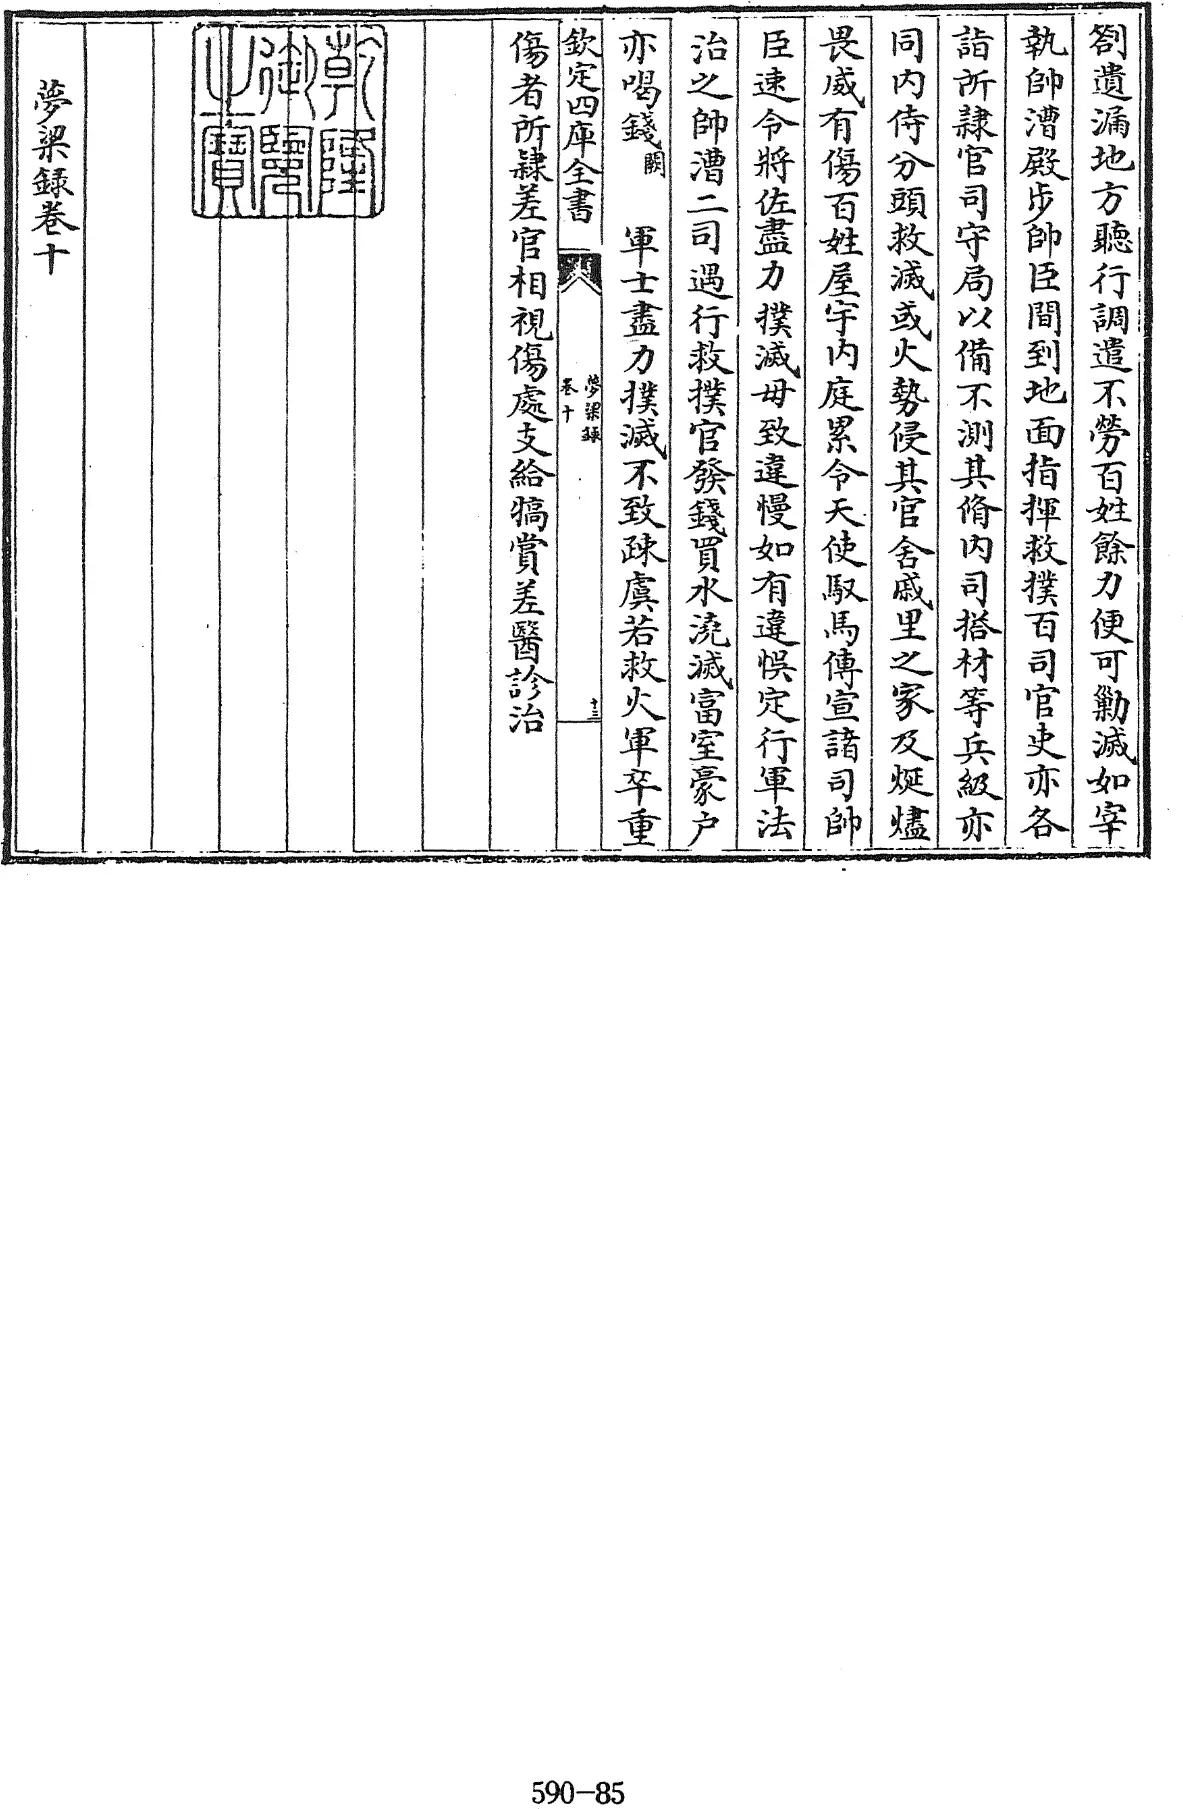 劄遺漏地方聽行調遣不勞百姓餘力便可勦滅如宰
執帥漕殿步帥臣間到地面指揮救撲百司官吏亦各
詣所隷官司守局以備不測其脩内司搭材等兵級亦
同内侍分頭救滅或火勢侵其官舍戚里之家及烻燼
畏威有傷百姓屋宇内庭累令天使馭馬傳宣諸司帥
臣速令將佐盡力撲滅毋致違慢如有違悞定行軍法
治之帥漕二司遇行救撲官發錢買水澆滅富室豪户
亦喝錢闕　軍士盡力撲滅不致疎虞若救火軍卒重
欽定四庫全書
夢梁録
卷十
十三
傷者所隷差官相視傷處支給犒賞差醫診治
乾隆御覽之寶
夢梁録卷十
590-85